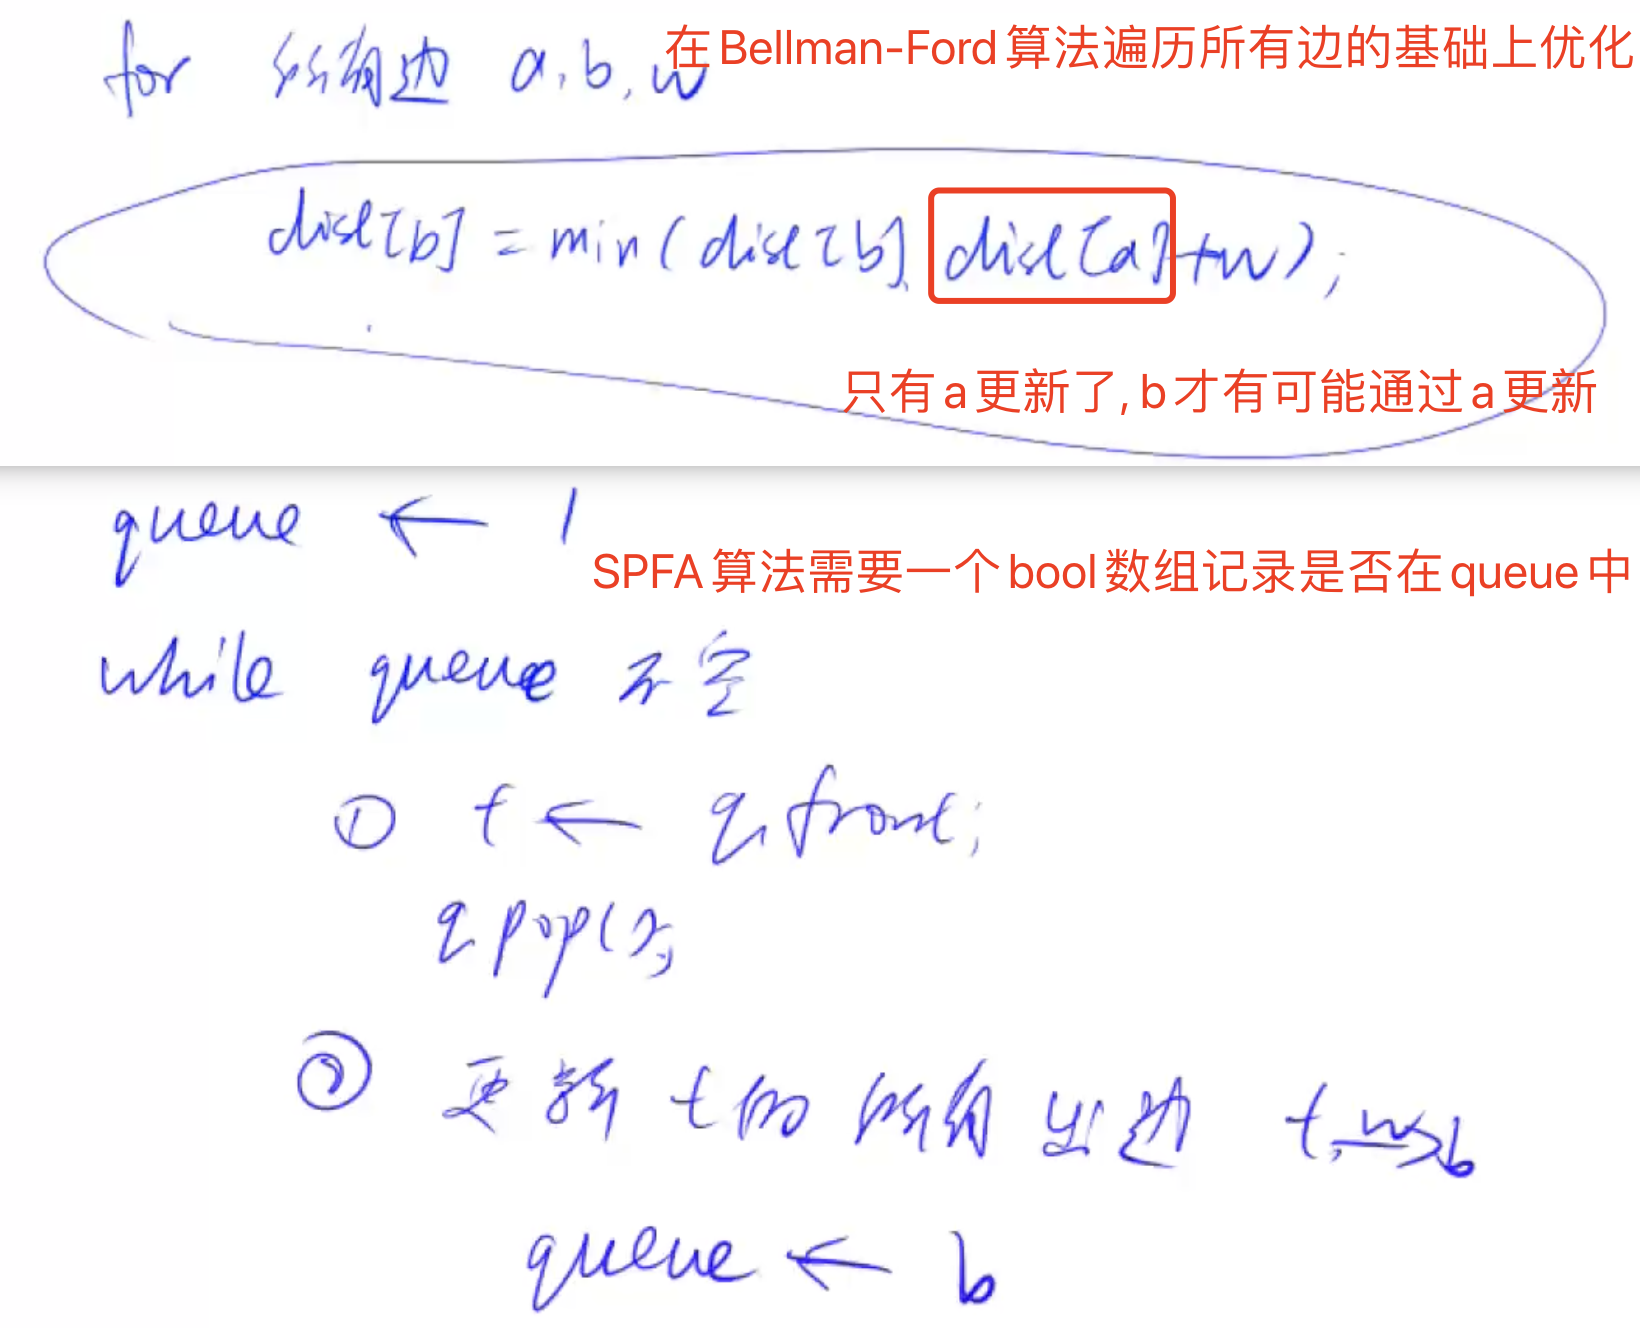 for 所有边 a,b,w 在Bellman-Ford算法遍历所有边的基础上优化
dist[b] = min(dist[b], dist[a]+w);
只有a更新了, b才有可能通过a更新
queue ← 1
SPFA算法需要一个bool数组记录是否在queue中
while queue 不空
① t ← q.front;
q.pop();
② 更新 t的 所有 出边 t, w→b
queue ← b